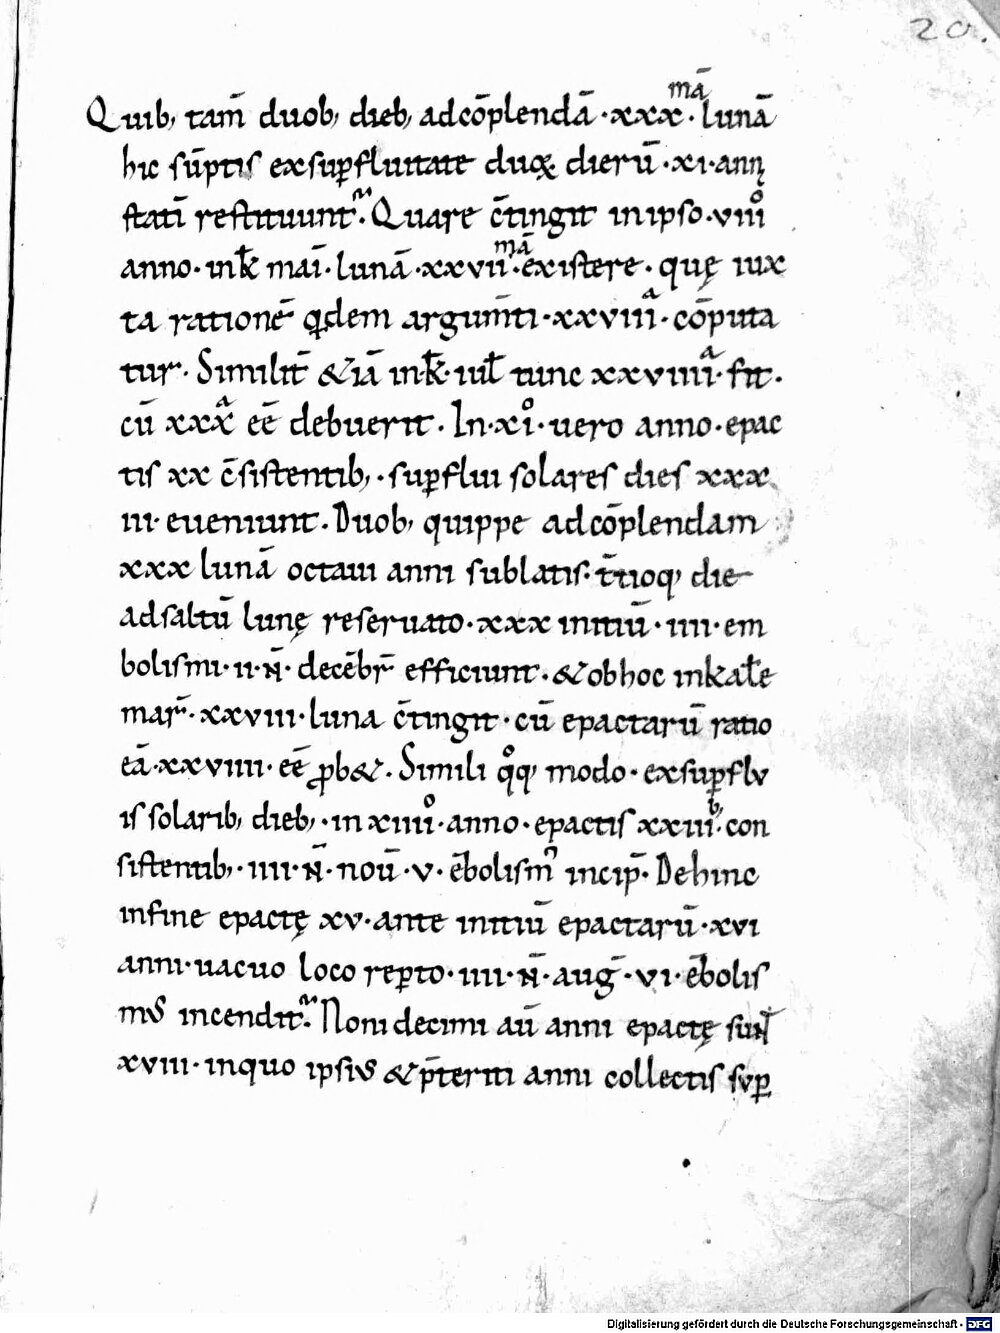 20.
Quib; tam̄ duob; dieb; adcōplendā ·xxx·mā lunā
hic sūptis exsup̄fluitate duoꝝ dierū ·xi· annꝫ
statī restituunt᷑. Quare c̄tingit inipso ·viiiᵒ
anno · ink̄ mai · lunā ·xxvii·mā existere · quę iux
ta rationē q̄dem argum̄ti ·xxviiiᵃ· cōputa
tur. Similit̄ &iā ink̄ · iul̄ tunc xxviiiiᵃ· fit.
cū xxxᵃ eē debuerit. In ·xiᵒ· uero anno · epac
tis xx c̄sistentib; · sup̄flui solares dies xxx
iii· eueniunt. Duob; quippe adcōplendam
xxx lunā octaui anni sublatis· t̄tioq; die
adsaltū lunę reseruato · xxx initiū · iiii · em
bolismi · ii · N̄ · decēbr̄ efficiunt · &obhoc inkal̄e
mar̄ · xxviii · luna c̄tingit · cū epactarū ratio
eā · xxviiii · eē ꝓb&. Simili qᵒq; modo · exsup̄flu
is solarib; dieb; · in xiiiiᵒ · anno · epactis xxiii · con
sistentib; · iiii · N̄ · nou̅ · v · ēbolism᾽ incip̄. Dehinc
infine epactę xv · ante initiū epactarū · xvi
anni · uacuo loco rep̄to · iiii · N̄ · aug̅ · vi · ēbolis
mus incendit᷑. Noni decimi au̅ anni epactę sun̄t
xviii · inquo ipsius &p̄teriti anni collectis sup̄
Digitalisierung gefördert durch die Deutsche Forschungsgemeinschaft - DFG